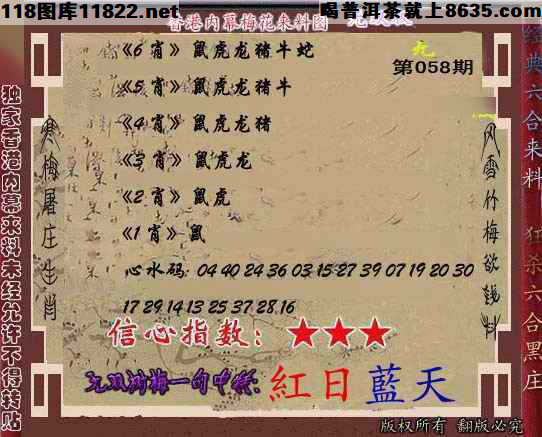 118图库11822.net
喝普洱茶就上8635.com
香港内幕梅花来料图
第058期
《6 肖》 鼠虎龙猪牛蛇
《5 肖》 鼠虎龙猪牛
《4 肖》 鼠虎龙猪
《3 肖》 鼠虎龙
《2 肖》 鼠虎
《1 肖》 鼠
心水码: 04 40 24 36 03 15 27 39 07 19 20 30
17 29 14 13 25 37 28 16
信心指数: ★★★
红日蓝天
版权所有 翻版必究
独家香港内幕来料未经允许不得转贴
寒梅屠庄生肖
风雪竹梅欲钱料
经典六合来料
狂杀六合黑庄